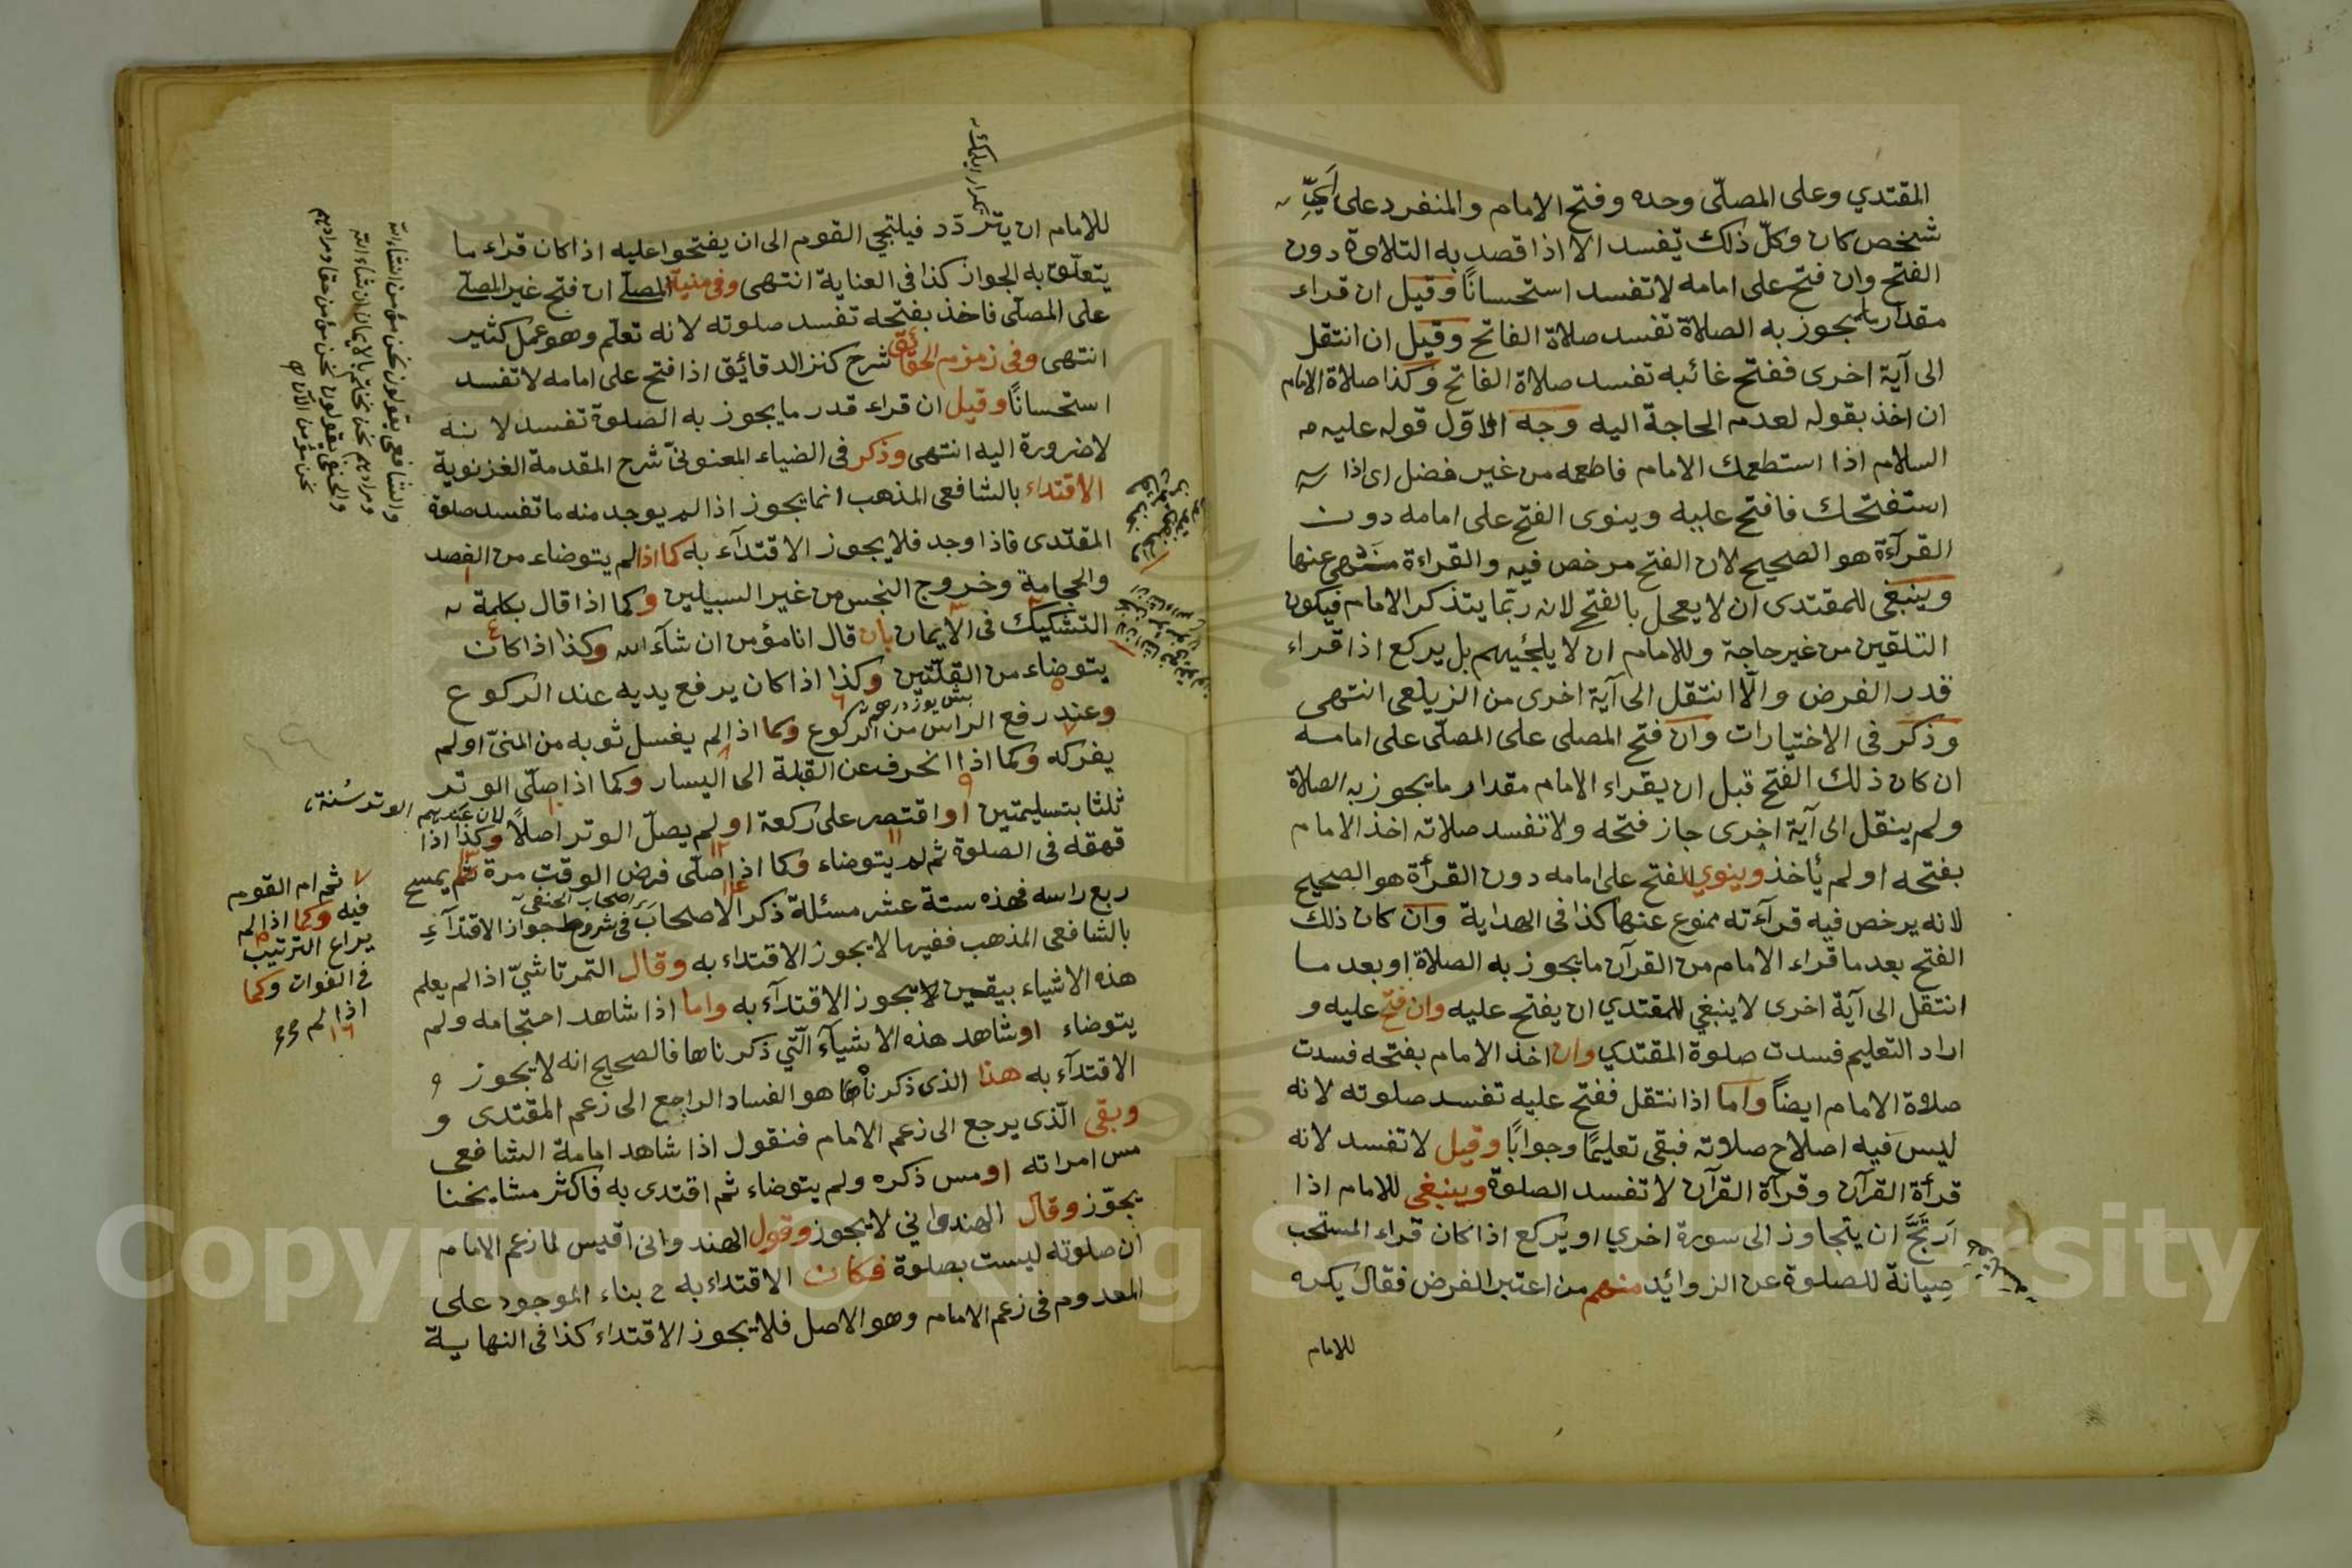 المقتدي وعلى المصلّى وحده وفتح الامام والمنفرد على أيّ
شخص كان وكلّ ذلك يفسد الا اذا قصد به التلاوة دون
الفتح وان فتح على امامه لا تفسد استحسانًا وقيل ان قراء
مقدار ما يجوز به الصلاة تفسد صلاة الفاتح وقيل ان انتقل
الى آية اخرى ففتح غائبه تفسد صلاة الفاتح وكذا صلاة الامام
ان اخذ بقوله لعدم الحاجة اليه وجه الاوّل قوله عليه
السلام اذا استطعمك الامام فاطعمه من غير فضل اى اذا
استفتحك فافتح عليه وينوى الفتح على امامه دون
القرآءة هو الصحيح لان الفتح مرخص فيه والقراءة منهى عنها
وينبغى للمقتدى ان لا يعجل بالفتح لانه ربّما يتذكر الامام فيكون
التلقين من غير حاجة وللامام ان لا يلجئيهم بل يركع اذا قراء
قدر الفرض والّا انتقل الى آية اخرى من الزيلعى انتهى
وذكر فى الاختيارات وان فتح المصلى على المصلّى على امامه
ان كان ذلك الفتح قبل ان يقراء الامام مقدار ما يجوز به الصلاة
ولم ينقل الى آية اخرى جاز فتحه ولا تفسد صلاته اخذ الامام
بفتحه او لم يأخذ وينوي الفتح على امامه دون القرأة هو الصحيح
لانه يرخص فيه قرآءته ممنوع عنها كذا فى الهداية وان كان ذلك
الفتح بعد ما قراء الامام من القرآن ما يجوز به الصلاة او بعد ما
انتقل الى آية اخرى لا ينبغي للمقتدي ان يفتح عليه وان فتح عليه و
اراد التعليم فسدت صلوة المقتدي وان اخذ الامام بفتحه فسدت
صلاة الامام ايضاً واما اذا نتقل ففتح عليه تفسد صلوته لانه
ليس فيه اصلاح صلاته فبقى تعليمًا وجوابًا وقيل لا تفسد لانه
قرأة القرآن وقرآة القرآن لا تفسد الصلوة وينبغى للامام اذا
اَرتَجَّ ان يتجاوز الى سورة اخري او يركع اذا كان قراء المستحب
صِيانة للصلوة عن الزوائد منهم من اعتبر الفرض فقال يكره
للامام
للامام ان يتردّد فيلتجي القوم الى ان يفتحوا عليه اذا كان قراء ما
يتعلّق به الجواز كذا فى العناية انتهى وفى منية المصلّى ان فتح غير المصلّى
على المصلّى فاخذ بفتحه تفسد صلوته لانه تعلّم وهو عمل كثير
انتهى وفى زمزم الحقائق شرح كنز الدقائق اذا فتح على امامه لا تفسد
استحسانًا وقيل ان قراء قدر ما يجوز به الصلوة تفسد لانه
لا ضرورة اليه انتهى وذكر فى الضياء المعنوىّ شرح المقدمة الغزنوية
الاقتداء بالشافعى المذهب انما يجوز اذا لم يوجد منه ما تفسد صلوة
المقتدى فاذا وجد فلا يجوز الاقتدآء به كما اذا لم يتوضاء من الفصد
والحجامة وخروج النجس من غير السبيلين وكما اذا قال بكلمة
التشكيك فى الايمان بان قال انا مؤمن ان شآء الله وكذا اذا كان
يتوضاء من القلّتين وكذا اذا كان يرفع يديه عند الركوع
وعند رفع الراس من الركوع وكما اذا لم يغسل ثوبه من المنىّ او لم
يفركه وكما اذا انحرف عن القبلة الى اليسار وكما اذا صلّى الوتر
ثلثا بتسليمتين او اقتصر على ركعة او لم يصلّ الوتر اصلاً وكذا اذا
لان عندهم الوتر سُنة
قهقه فى الصلوة ثم لم يتوضاء وكما اذا صلّى فرض الوقت مرة ثم يمسح
ربع راسه فهذه ستة عشر مسئلة ذكر الاصحاب فى شروط جواز الاقتدآءِ
اصحاب الحنفى
بالشافعى المذهب ففيها لا يجوز الاقتداء به وقال التمرتاشيّ اذا لم يعلم
هذه الاشياء بيقين لا يجوز الاقتدآء به واما اذا شاهد احتجامه ولم
يتوضاء او شاهد هذه الاشيآء الّتي ذكرناها فالصحيح انه لا يجوز
الاقتدآء به هذا الذى ذكرناه هو الفساد الراجع الى زعم المقتدى و
وبقى الّذى يرجع الى زعم الامام فنقول اذا شاهد امامة الشافعى
مس امراته او مس ذكره ولم يتوضاء ثم اقتدى به فاكثر مشايخنا
يجوّز وقال الهندوانى لا يجوز وقول الهندوانى اقيس لما زعم الامام
ان صلوته ليست بصلوة فكان الاقتداء به ح بناء الموجود على
المعدوم فى زعم الامام وهو الاصل فلا يجوز الاقتداء كذا فى النهاية
والشافعى يقولون نحن مؤمن انشاء الله
ومرادهم نحن نختم بالايمان ان شاء الله
والحنفى يقولون نحن مؤمن حقا ومرادهم
نحن مؤمن الآن
ثم ام القوم
فيه وكما اذا لم
يراع الترتيب
فى الفوات وكما
اذا لم
Copyright © King Saud University